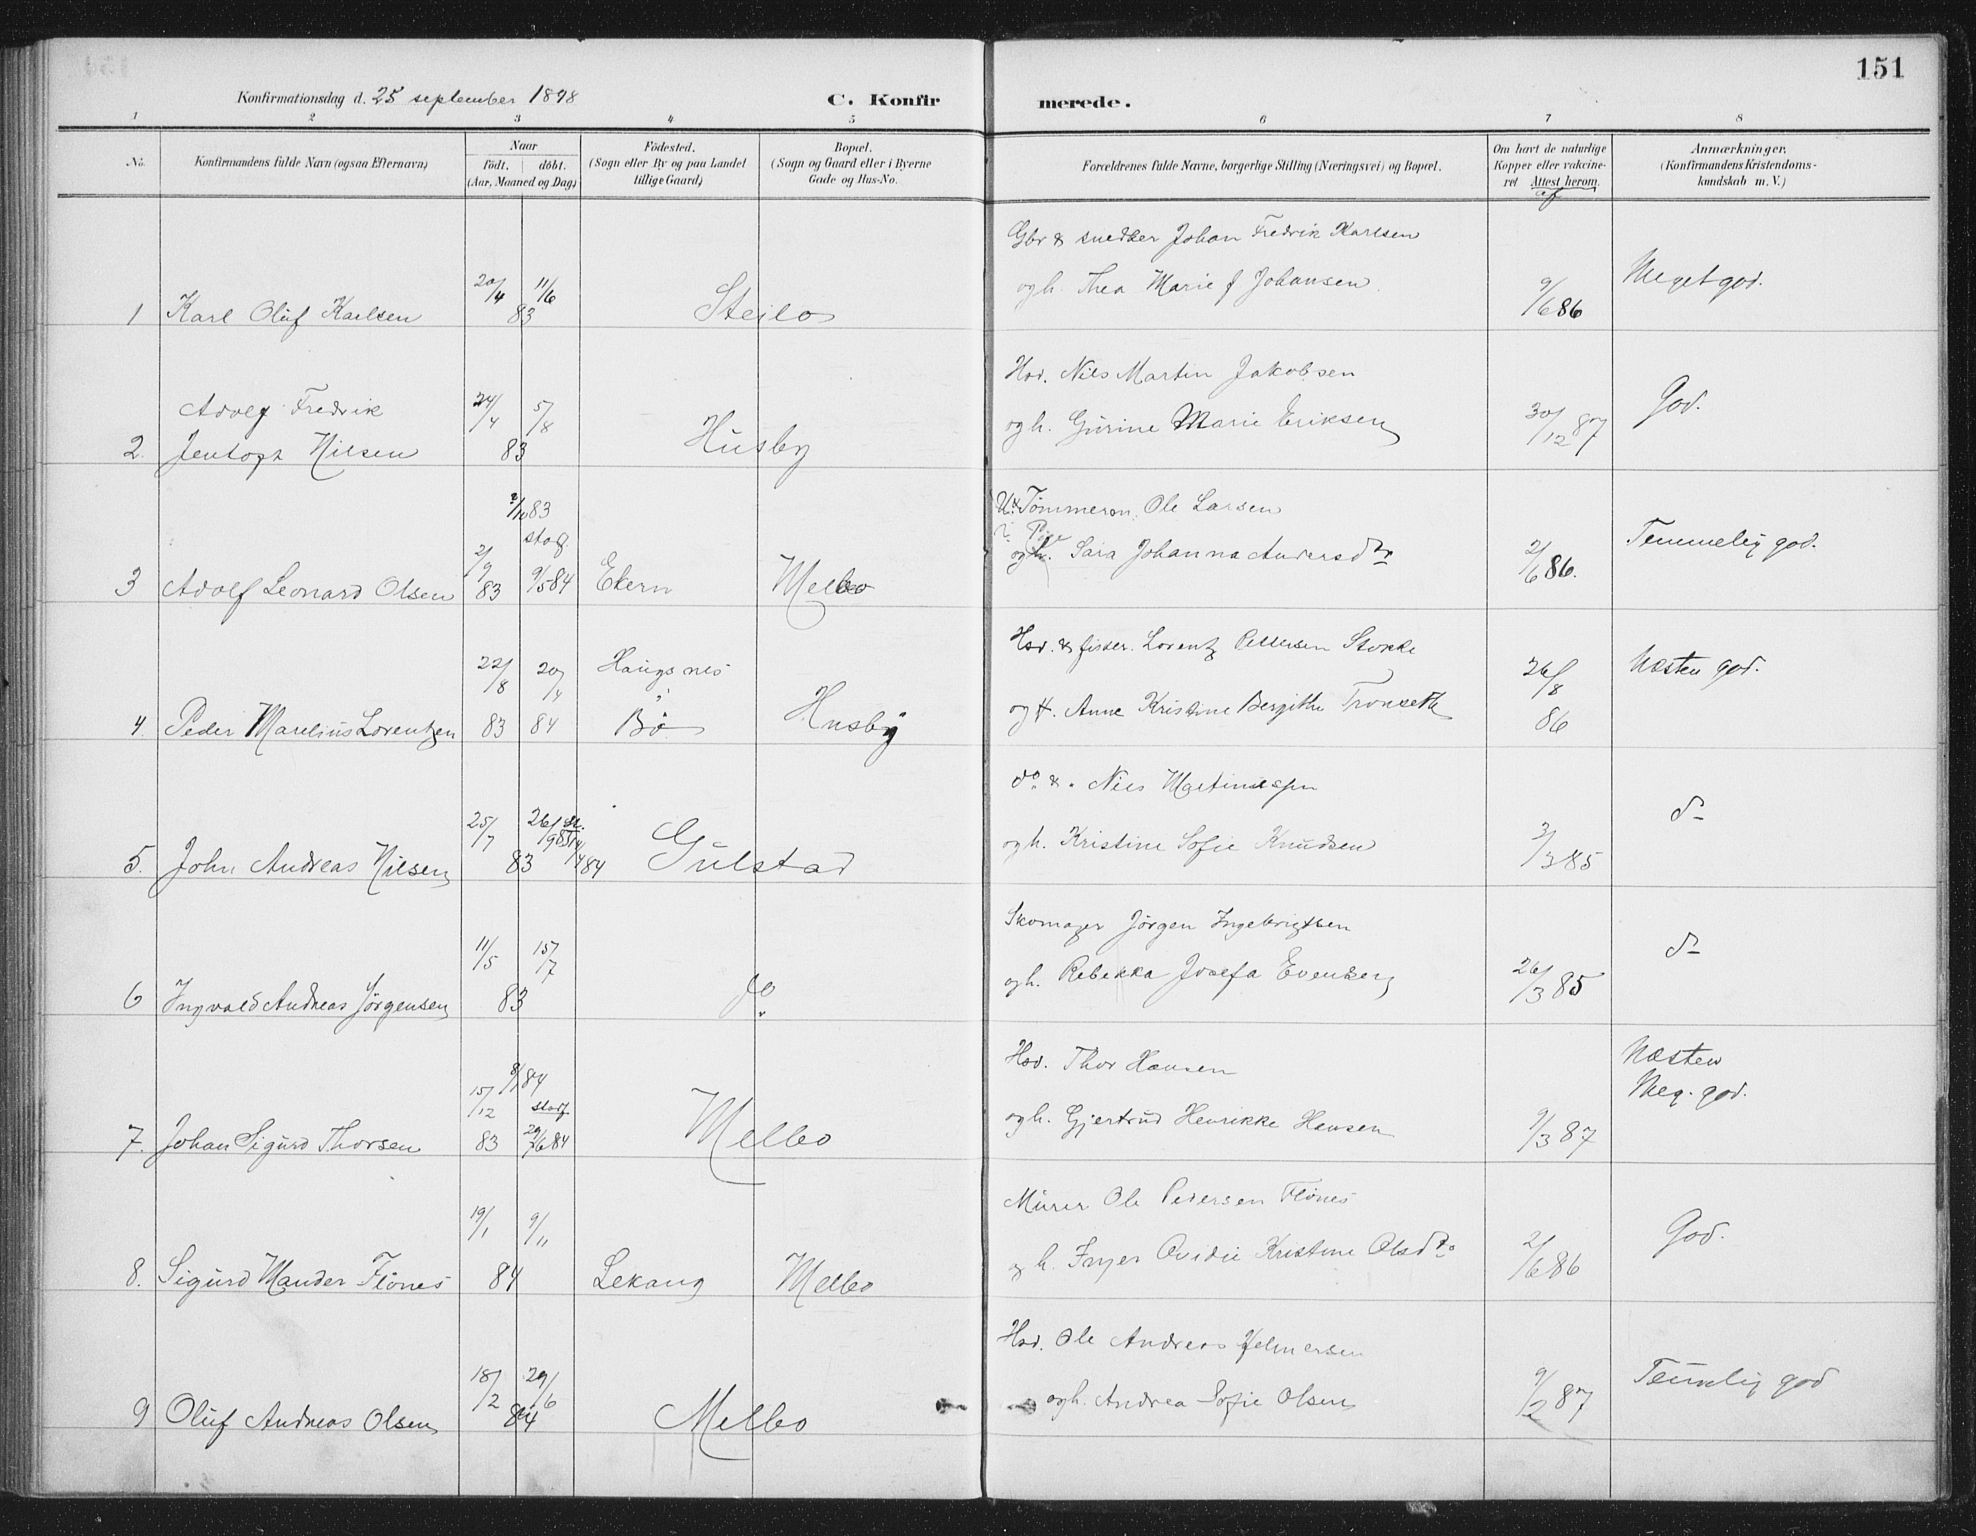 151
Konfirmationsdag d. 25 september 1898
C. Konfir merede.
1 2 3 4 5 6 7 8
No.
Konfirmandens fulde Navn (ogsaa Efternavn)
Naar
födt. döbt.
(Aar, Maaned og Dag)
Födested.
(Sogn eller By og paa Landet
tillige Gaard)
Bopæl.
(Sogn og Gaard eller i Byerne
Gade og Hus-No.
Forældrenes fulde Navne, borgerlige Stilling (Næringsvei) og Bopæl.
Om havt de naturlige
Kopper eller vakcine-
ret Attest herom.
af
Anmærkninger.
(Konfirmandens Kristendoms-
kundskab m. V.)
Gbr & snedker Johan Fredrik Karlsen
20/4 11/6 ogh. Thea Marie f Johansen. 9/6 86 Meget god.
1 Karl Oluf Karlsen 83 Steilo
Hsd. Nils Martin Jakobsen
Adolf Fredrik 24/4 5/8 ogh. Gurine Marie Eriksen 30/12 87 God.
2. Jentoft Nilsen 83 Husby
2/10 83 Tømmerm. Ole Larsen
stad. Pige Sara Johanna Andersdtr 2/6 86. Temmelig god.
2/9
3 Adolf Leonard Olsen 83 9/5 84 Ekern Melbo
Hsd. & fisker. Lorentz Pettersen Stokke
22/8 20/4 Haugsnes 26/8 Næsten god.
og H. Anne Kristine Bergitte Tronseth 86
4. Peder Marelius Lorentzen 83 84 Bø Husby
do & . Nils Martinussen
25/7 26/9 83 st. ogh. Kristine Sofie Knudsen 3/3 85 d-
5. John Andreas Nilsen 83 14/4 84 Gulstad
Skomager Jørgen Ingebrigtsen
11/5 15/7 ogh. Rebekka Josefa Evenberg 26/3 85 d-
6 Ingvald Andreas Jørgensen 83 do.
Hsd. Thor Hansen
15/12 8/1 84 stad. ogh. Gjertrud Henrikke Hansen 9/3 87 Næsten
Meg. god.
7. Johan Sigurd Thorsen 83 29/6 84 Melbo
Murer Ole Pedersen Flønes
19/1 9/11 og h. Inger Ovidie Kristine Olsdtr. 2/6 86 God.
8. Sigurd Mander Flønes 84 Lekang Melbo
Hsd. Ole Andreas Helmersen
18/2 29/6 ogh. Andrea Sofie Olsen 9/2 87 Temmelig god
9 Oluf Andreas Olsen 84 Melbo